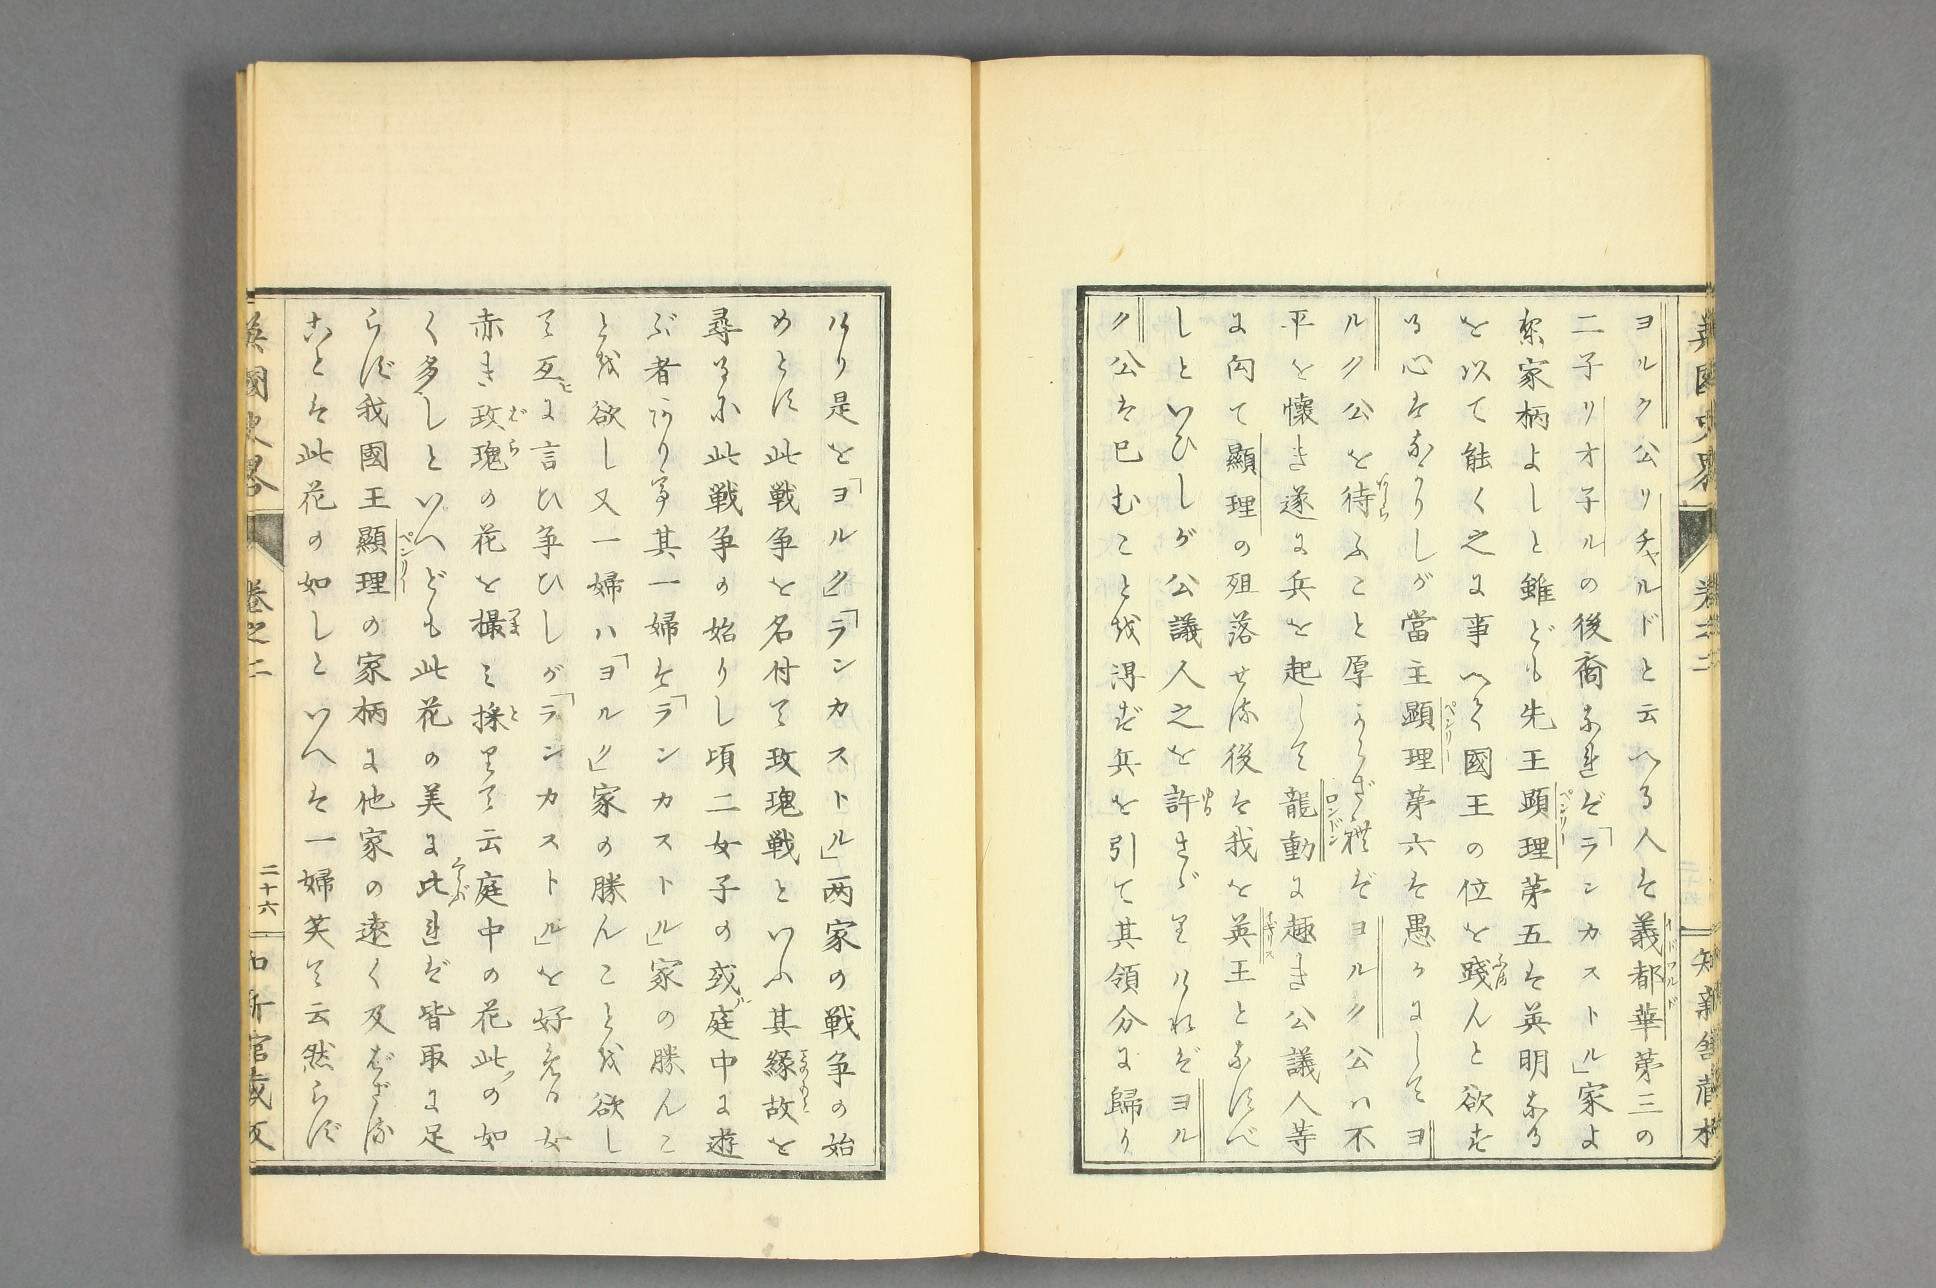 ヨルク公リチャルドと云へる人は義都華第三の
二子リオ子ルの後裔なれば「ランカストル」家よ
り家柄よしと雖ども先王顕理第五は英明なる
を以て能く之に事へて國王の位を践んと欲す
る心はなかりしが當主顕理第六は愚かにしてヨ
ルク公を待ふこと厚からざればヨルク公ハ不
平を懐き遂に兵を起して龍動に趣き公議人等
に向て顯理の殂落せる後は我を英王となすべ
しといひしが公議人之を許さゞりければヨル
ク公は已むことを得ず兵を引て其領分に歸り
英國史畧
卷之二
けり是を「ヨルク」「ランカストル」両家の戦争の始
めとす此戦争を名付て玫瑰戦といふ其縁故を
尋るに此戦争の始りし頃二女子の或庭中に遊
ぶ者あり其一婦は「ランカストル」家の勝んこ
とを欲し又一婦ハ「ヨルク」家の勝んことを欲し
て互に言ひ争ひしが「ランカストル」を好める女
赤き玫瑰の花を撮み採りて云庭中の花此の如
く多しといへども此花の美に比れば皆取に足
らず我國王顯理の家柄に他家の遠く及ばざる
ことは此花の如しといへば一婦笑て云然らず
英國史畧
卷之二
二十六
知新館藏板